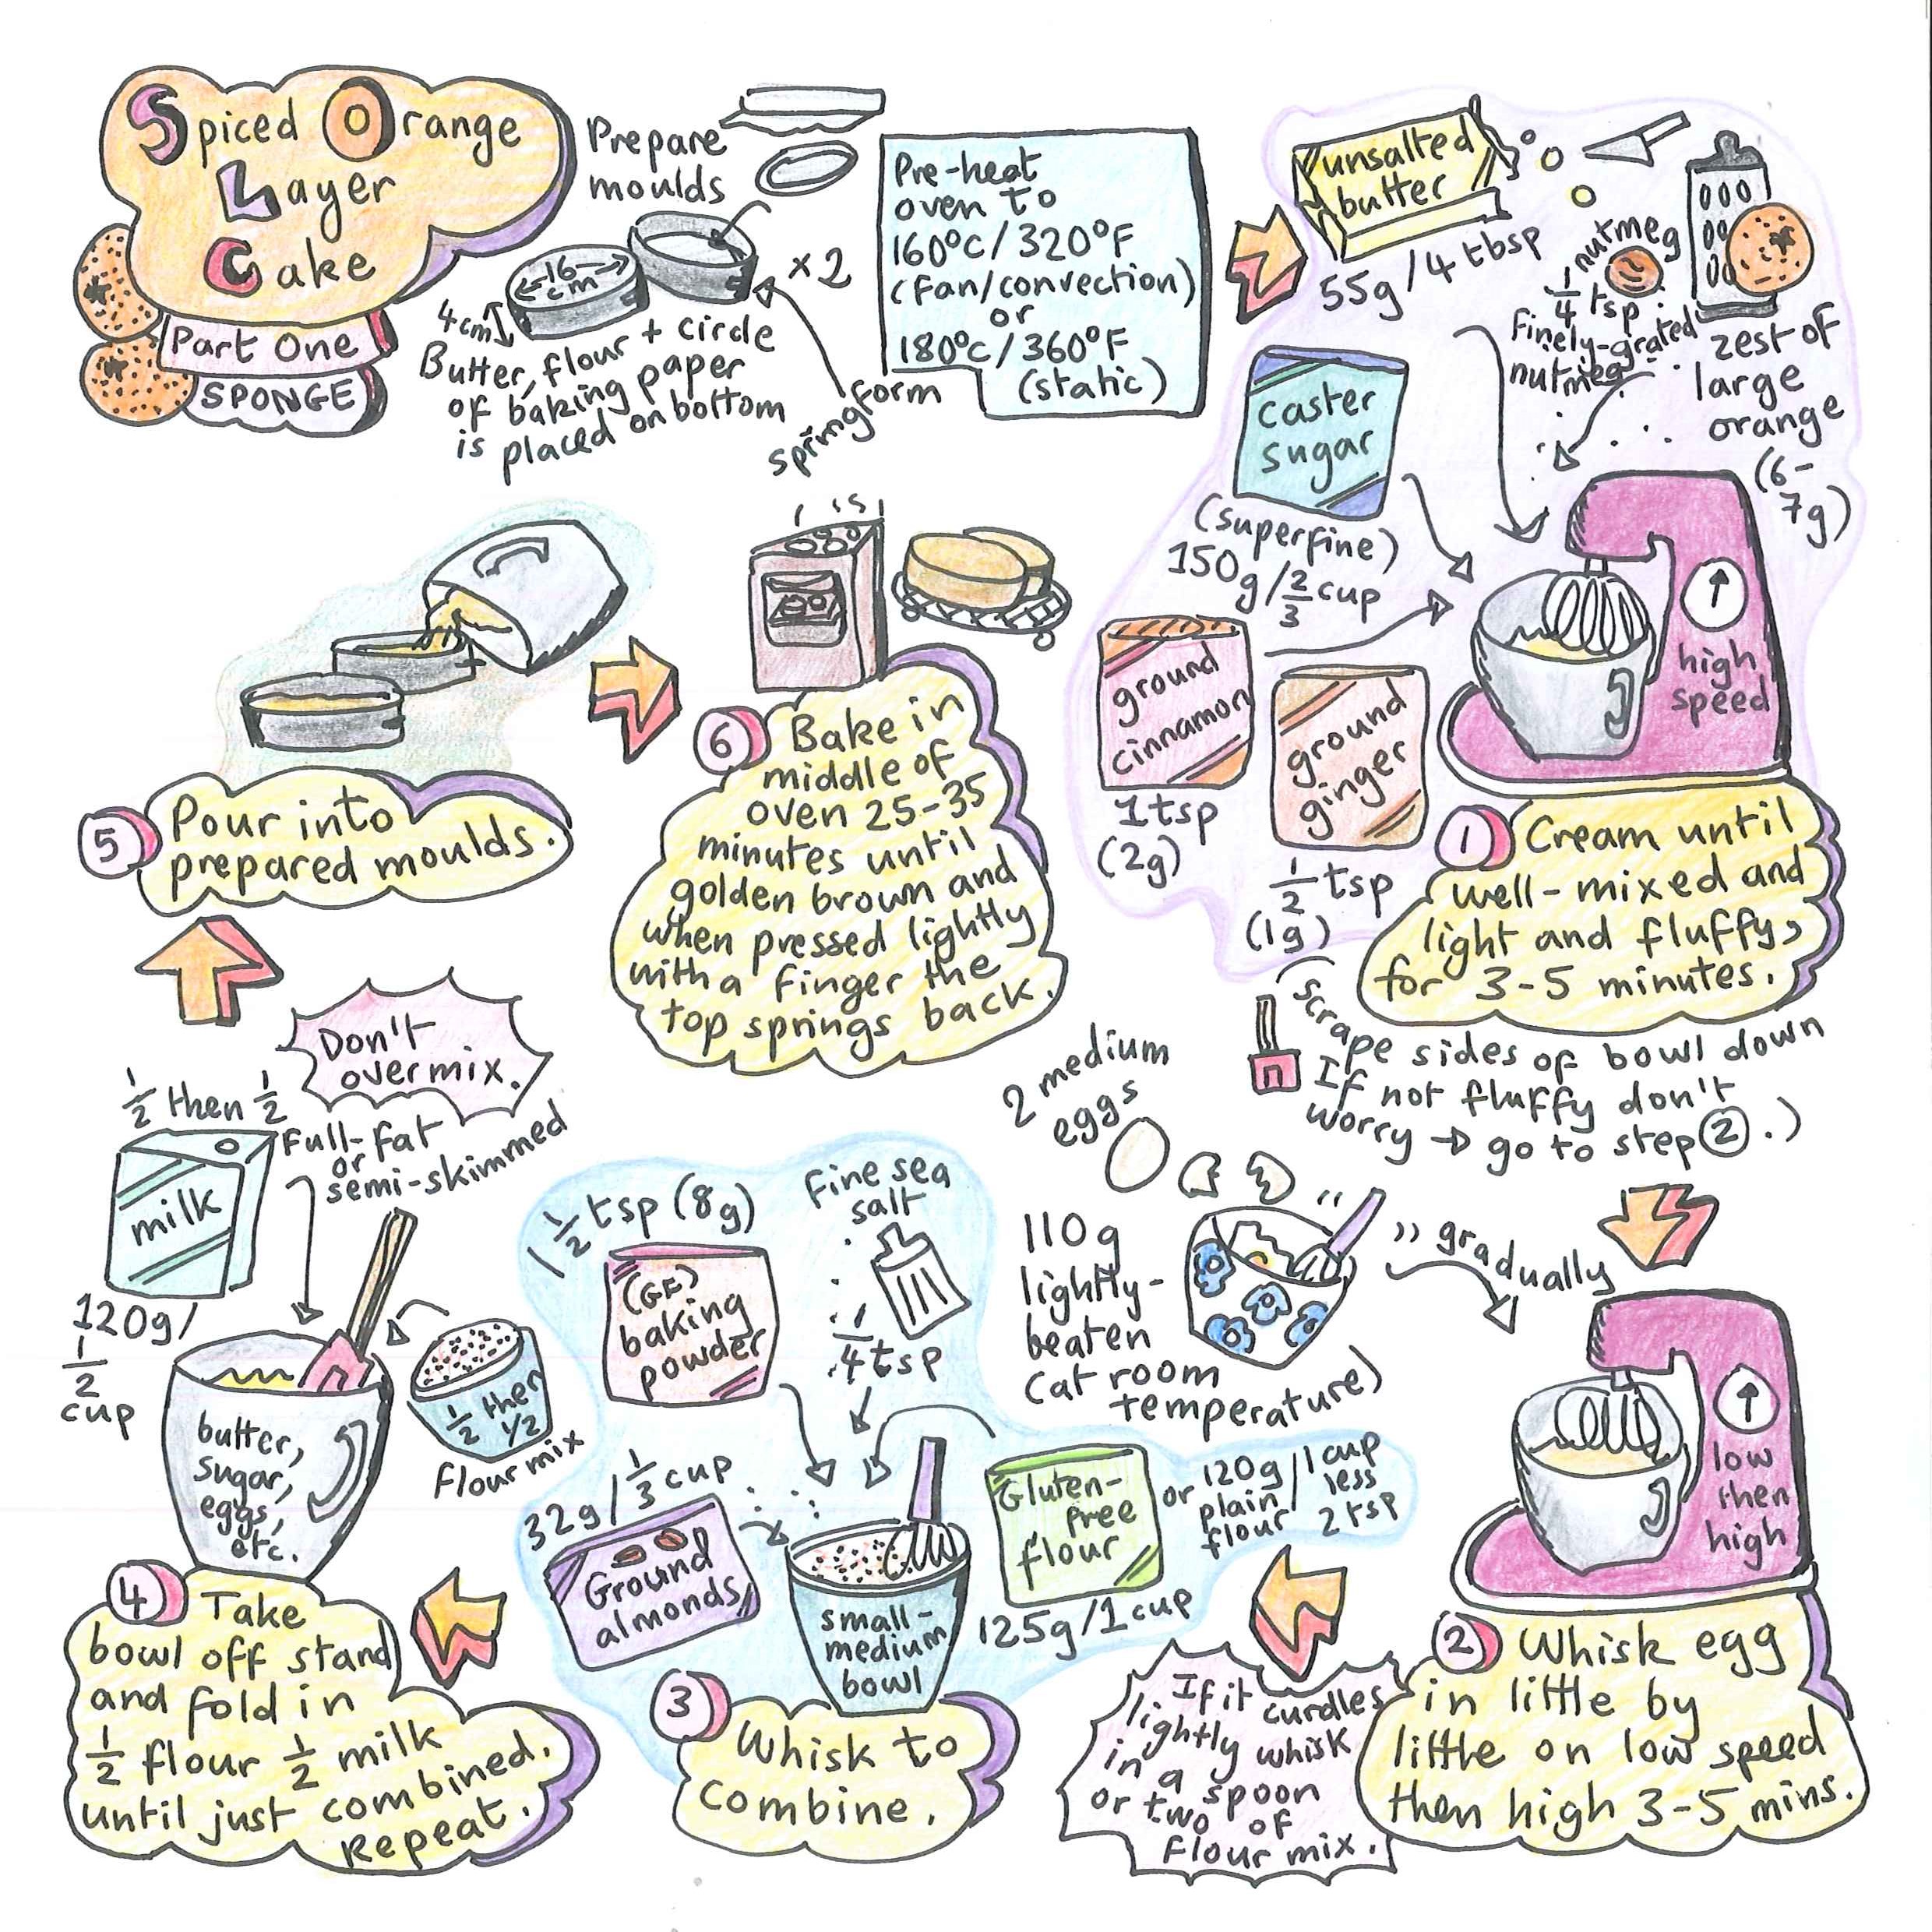 Spiced Orange
Layer
Cake
Part One
SPONGE
Prepare
moulds
16
cm
4cm
x 2
Butter, flour + circle
of baking paper
is placed on bottom
springform
Pre-heat
oven to
160°C/320°F
(fan/convection)
or
180°C/360°F
(static)
unsalted
butter
55g/4 tbsp
nutmeg
1/4 tsp
finely-grated
nutmeg
zest of
large
orange
(6-
7g)
caster
sugar
(superfine)
150g/2/3 cup
ground
cinnamon
1 tsp
(2g)
ground
ginger
1/2 tsp
(1g)
high
speed
1 Cream until
well-mixed and
light and fluffy,
for 3-5 minutes.
(Scrape sides of bowl down
If not fluffy don't
worry → go to step 2.)
2 medium
eggs
110g
lightly-
beaten
(at room
temperature)
gradually
low
then
high
2 Whisk egg
in little by
little on low speed
then high 3-5 mins.
If it curdles
lightly whisk
in a spoon
or two of
flour mix.
1 1/2 tsp (8g)
(GF)
baking
powder
Fine sea
salt
1/4 tsp
32g/1/3 cup
Ground
almonds
Gluten-
free
flour
125g/1 cup
or 120g/1 cup
plain/less
flour 2 tsp
small-
medium
bowl
3 Whisk to
combine.
1/2 then 1/2
Full-fat
or
semi-skimmed
milk
120g/
1/2
cup
Don't
overmix.
butter,
sugar,
eggs,
etc.
1/2 then
1/2
flour mix
4 Take
bowl off stand
and fold in
1/2 flour 1/2 milk
until just combined.
Repeat.
5 Pour into
prepared moulds.
6 Bake in
middle of
oven 25-35
minutes until
golden brown and
when pressed lightly
with a finger the
top springs back.